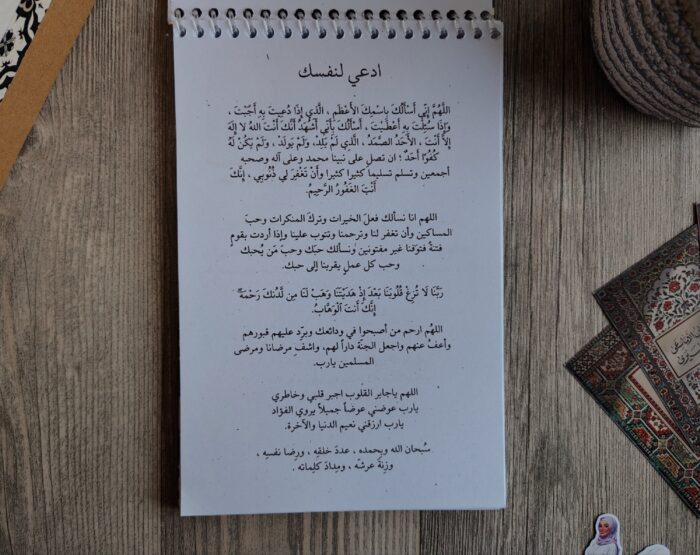 ادعي لنفسك
اللَّهُمَّ إِنِّي أَسْأَلُكَ بِاسْمِكَ الأَعْظَمِ ، الَّذِي إِذَا دُعِيتَ بِهِ أَجَبْتَ ،
وَإِذَا سُئِلْتَ بِهِ أَعْطَيْتَ ، أَسْأَلُكَ بِأَنِّي أَشْهَدُ أَنَّكَ أَنْتَ اللهُ لا إِلَهَ
إِلَّا أَنْتَ ، الأَحَدُ الصَّمَدُ ، الَّذِي لَمْ يَلِدْ، وَلَمْ يُولَدْ ، وَلَمْ يَكُنْ لَهُ
كُفُوًا أَحَدٌ ؛ ان تصل على نبينا محمد وعلى آله وصحبه
أجمعين وتسلم تسليما كثيرا كثيرا وأَنْ تَغْفِرَ لِي ذُنُوبِي ، إِنَّكَ
أَنْتَ الغَفُورُ الرَّحِيمُ.
اللهم انا نسألك فعلَ الخيرات وتركَ المنكرات وحبَ
المساكين وأن تغفر لنا وترحمنا وتتوب علينا وإذا أردت بقومٍ
فتنةً فتوَفنا غير مفتونين ونسألك حبَك وحبَ مَن يُحبك
وحب كل عملٍ يقربنا إلى حبك.
رَبَّنَا لَا تُزِغْ قُلُوبَنَا بَعْدَ إِذْ هَدَيْتَنَا وَهَبْ لَنَا مِن لَّدُنكَ رَحْمَةً
إِنَّكَ أَنتَ الْوَهَّابُ.
اللهُم ارحم من أصبحوا في ودائعك وبرِّد عليهم قبورهم
وأعفُ عنهم واجعل الجنّة داراً لهم، واشفِ مرضانا ومرضى
المسلمين يارب.
اللهم ياجابر القلوب اجبر قلبي وخاطري
يارب عوضني عوضاً جميلاً يروي الفؤاد
يارب ارزقني نعيم الدنيا والآخرة.
سُبحان الله وبحمده ، عددَ خلقِه ، ورِضا نفسِه ،
وزِنةَ عرشه ، ومِدادَ كلِماته .